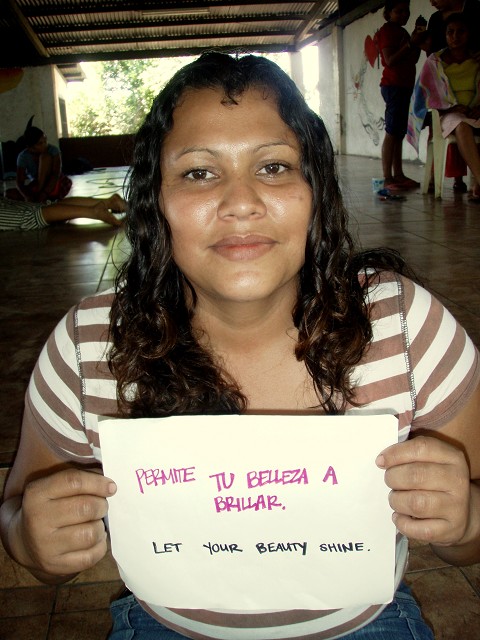 PERMITE TU BELLEZA A
BRILLAR.
LET YOUR BEAUTY SHINE.